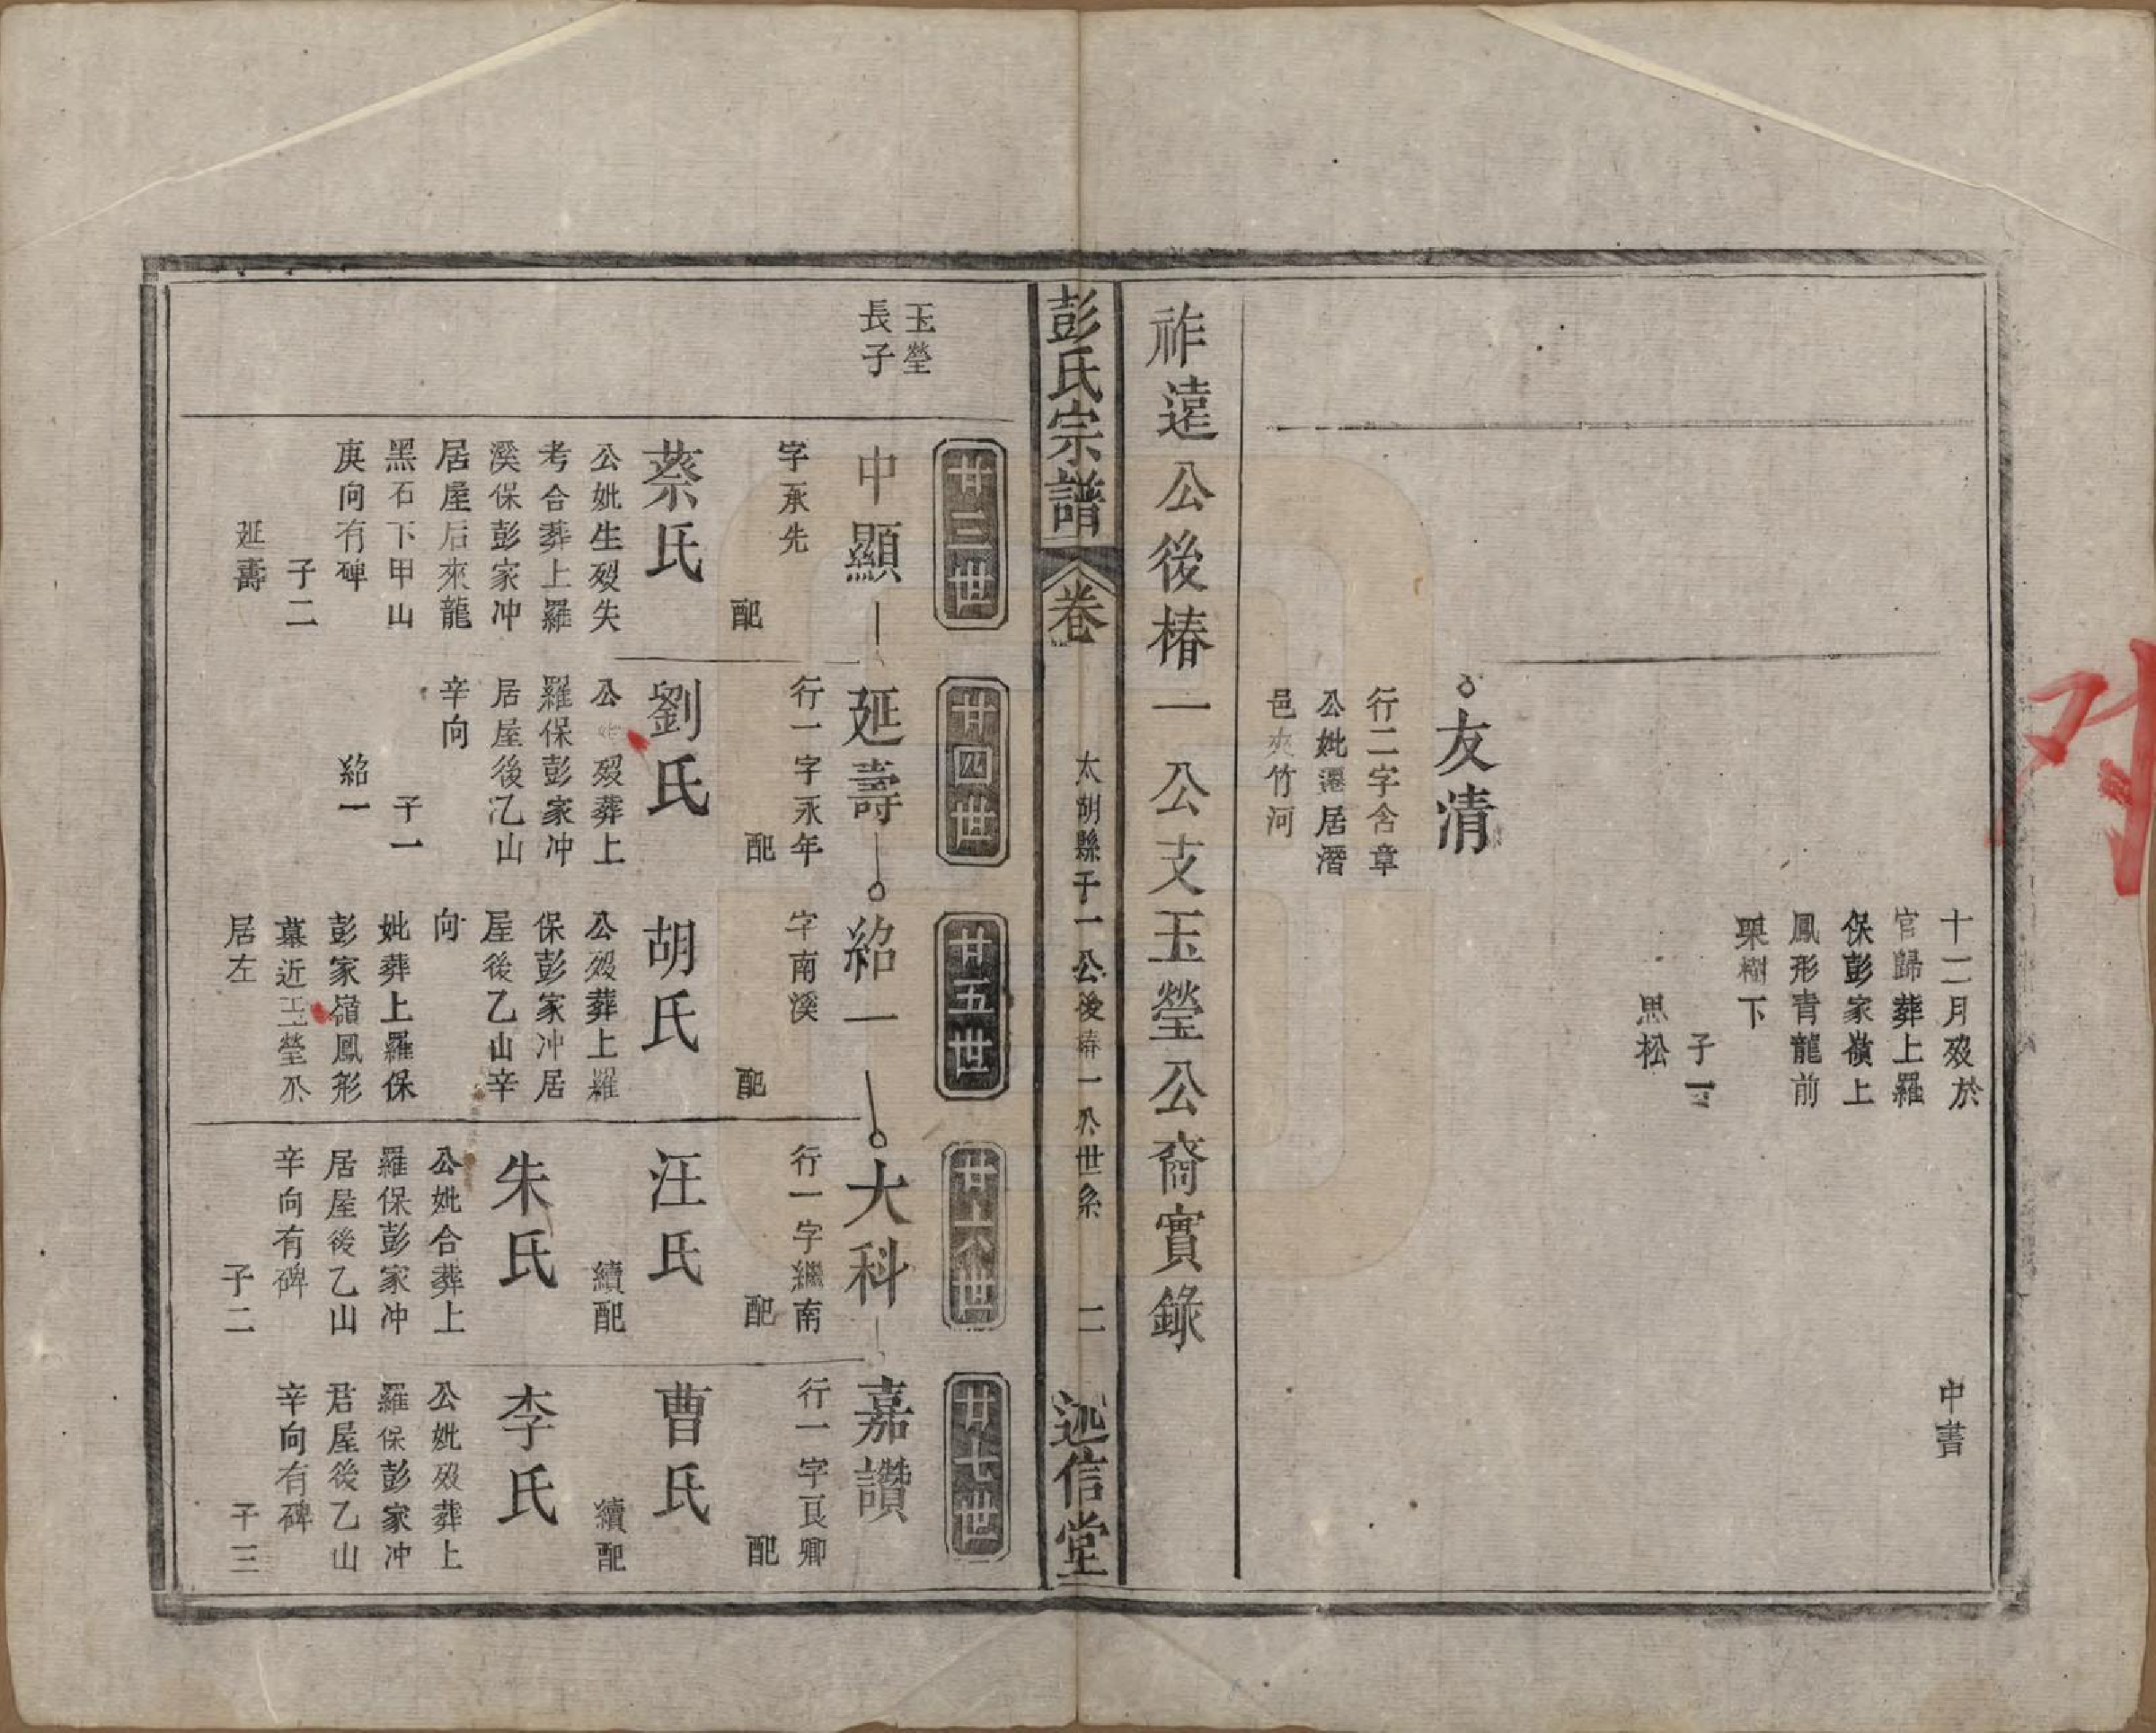 十二月歿於
官歸葬上羅
保彭家嶺上
鳳形青龍前
栗樹下
子一
思松
中書
友清
行二字含章
公妣遷居潛
邑夾竹河
祚遠公後椿一公支玉瑩公裔實錄
彭氏宗譜
卷
太湖縣千一公後椿一公世系
二
述信堂
玉瑩
長子
廿三世
中顯
字承先
配
蔡氏
公妣生歿失
考合葬上羅
溪保彭家冲
居屋后來龍
黑石下甲山
庚向有碑
子二
延壽
廿四世
延壽
行一字永年
配
劉氏
公妣歿葬上
羅保彭家冲
居屋後乙山
辛向
子一
紹一
廿五世
紹一
字南溪
配
胡氏
公歿葬上羅
保彭家冲居
屋後乙山辛
向
妣葬上羅保
彭家嶺鳳形
墓近玉瑩公
居左
廿六世
大科
行一字繼南
配
汪氏
續配
朱氏
公妣合葬上
羅保彭家冲
居屋後乙山
辛向有碑
子二
廿七世
嘉讚
行一字良卿
配
曹氏
續配
李氏
公妣歿葬上
羅保彭家冲
君屋後乙山
辛向有碑
子三